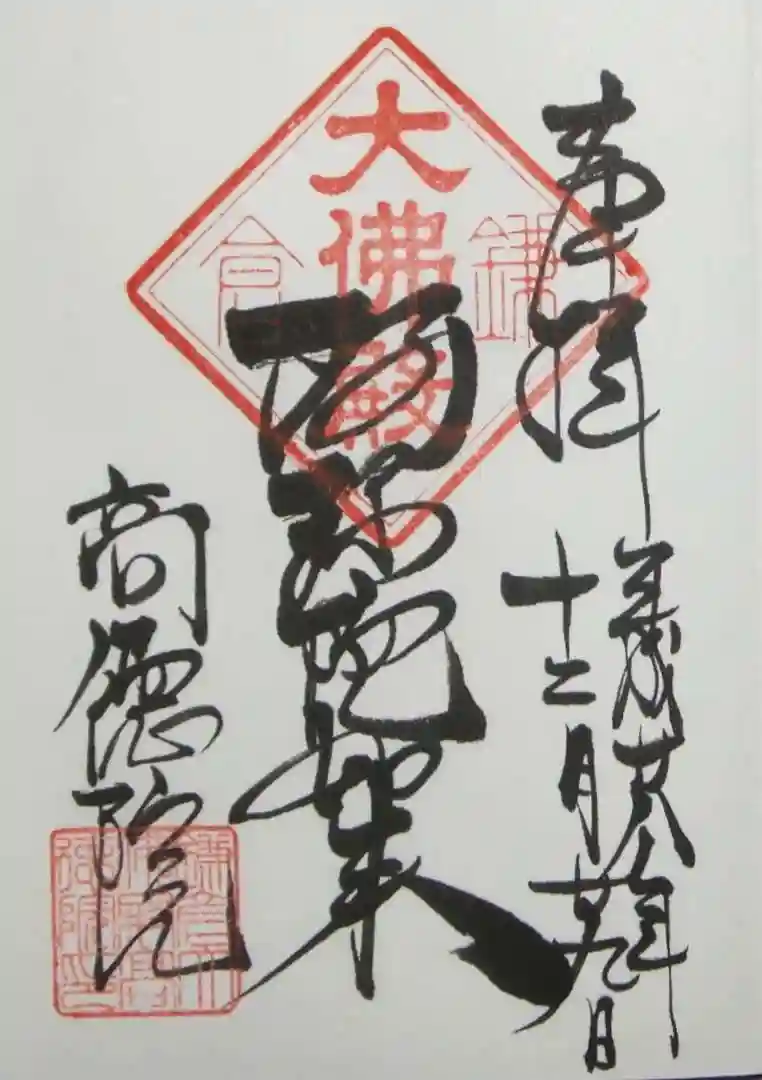 奉拝
平成廿八年
十二月廿九日
鎌倉
大佛殿
阿弥陀如来
高徳院